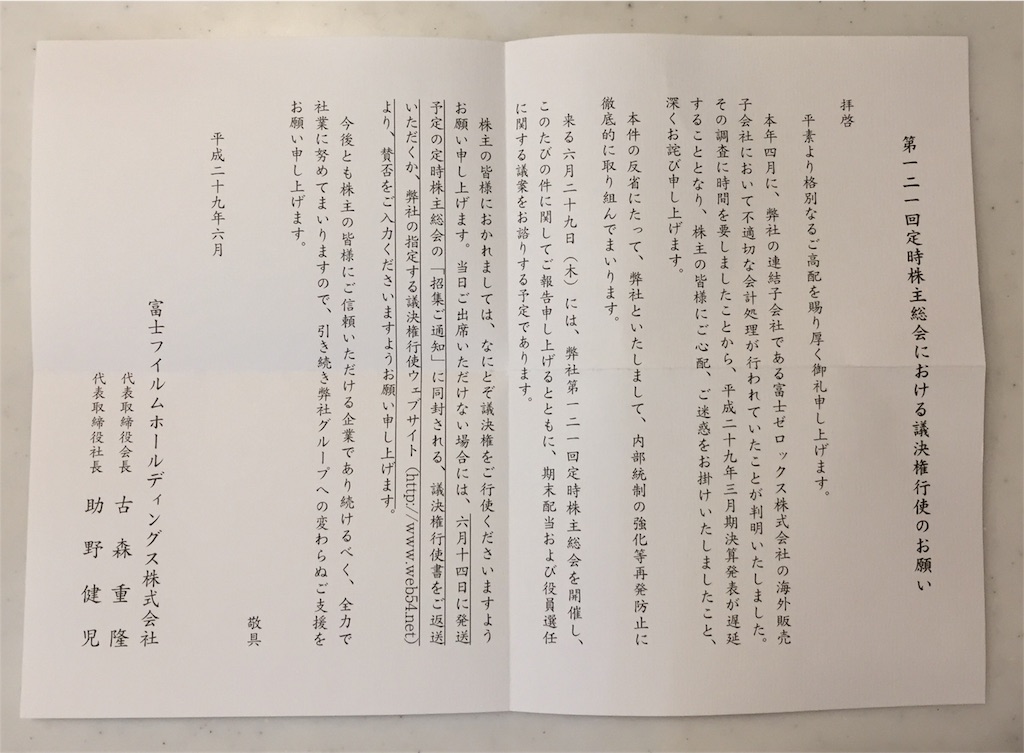 第一二一回定時株主総会における議決権行使のお願い
拝啓
平素より格別なるご高配を賜り厚く御礼申し上げます。
本年四月に、弊社の連結子会社である富士ゼロックス株式会社の海外販売
子会社において不適切な会計処理が行われていたことが判明いたしました。
その調査に時間を要しましたことから、平成二十九年三月期決算発表が遅延
することとなり、株主の皆様にご心配、ご迷惑をお掛けいたしましたこと、
深くお詫び申し上げます。
本件の反省にたって、弊社といたしまして、内部統制の強化等再発防止に
徹底的に取り組んでまいります。
来る六月二十九日（木）には、弊社第一二一回定時株主総会を開催し、
このたびの件に関してご報告申し上げるとともに、期末配当および役員選任
に関する議案をお諮りする予定であります。
株主の皆様におかれましては、なにとぞ議決権をご行使くださいますよう
お願い申し上げます。当日ご出席いただけない場合には、六月十四日に発送
予定の定時株主総会の「招集ご通知」に同封される、議決権行使書をご返送
いただくか、弊社の指定する議決権行使ウェブサイト（http://www.web54.net）
より、賛否をご入力くださいますようお願い申し上げます。
今後とも株主の皆様にご信頼いただける企業であり続けるべく、全力で
社業に努めてまいりますので、引き続き弊社グループへの変わらぬご支援を
お願い申し上げます。
敬具
平成二十九年六月
富士フイルムホールディングス株式会社
代表取締役会長 古森重隆
代表取締役社長 助野健児